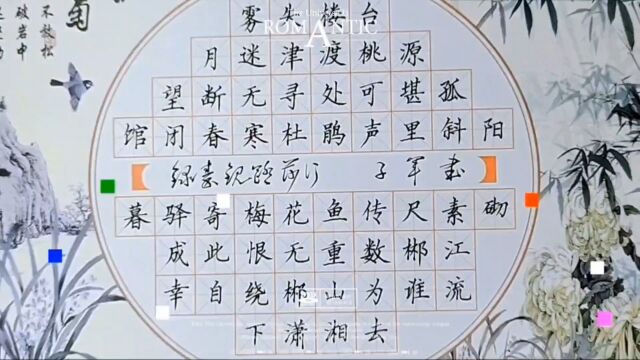 雾失楼台
月迷津渡桃源
望断无寻处可堪孤
馆闭春寒杜鹃声里斜阳
子军书
暮驿寄梅花鱼传尺素砌
成此恨无重数郴江
幸自绕郴山为谁流
下潇湘去
ROMANTIC
不放松
破岩中